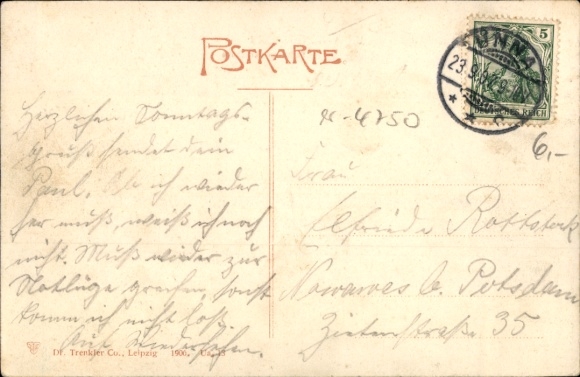 POSTKARTE
UNNA
5
DEUTSCHES REICH
4750
6,-
Herzlichen Sonntags-
Gruß sendet dein
Paul. Ob ich wieder
her muß, weiß ich noch
nicht. Muß wieder zur
Notlüge greifen, sonst
komm ich nicht los.
Auf Wiedersehen.
Frau
Elfriede Rottstock
Nowawes b. Potsdam
Zietenstraße 35
Dr. Trenkler Co., Leipzig 1906.